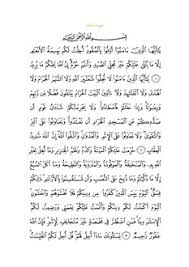 بِسْمِ ٱللَّهِ ٱلرَّحْمَٰنِ ٱلرَّحِيمِ
يَٰٓأَيُّهَا ٱلَّذِينَ ءَامَنُوٓا۟ أَوْفُوا۟ بِٱلْعُقُودِ أُحِلَّتْ لَكُم بَهِيمَةُ ٱلْأَنْعَٰمِ
إِلَّا مَا يُتْلَىٰ عَلَيْكُمْ غَيْرَ مُحِلِّى ٱلصَّيْدِ وَأَنتُمْ حُرُمٌ إِنَّ ٱللَّهَ يَحْكُمُ مَا يُرِيدُ
يَٰٓأَيُّهَا ٱلَّذِينَ ءَامَنُوا۟ لَا تُحِلُّوا۟ شَعَٰٓئِرَ ٱللَّهِ وَلَا ٱلشَّهْرَ ٱلْحَرَامَ وَلَا
ٱلْهَدْىَ وَلَا ٱلْقَلَٰٓئِدَ وَلَآ ءَآمِّينَ ٱلْبَيْتَ ٱلْحَرَامَ يَبْتَغُونَ فَضْلًا مِّن رَّبِّهِمْ
وَرِضْوَٰنًا وَإِذَا حَلَلْتُمْ فَٱصْطَادُوا۟ وَلَا يَجْرِمَنَّكُمْ شَنَـَٔانُ قَوْمٍ أَن
صَدُّوكُمْ عَنِ ٱلْمَسْجِدِ ٱلْحَرَامِ أَن تَعْتَدُوا۟ وَتَعَاوَنُوا۟ عَلَى ٱلْبِرِّ وَٱلتَّقْوَىٰ
وَلَا تَعَاوَنُوا۟ عَلَى ٱلْإِثْمِ وَٱلْعُدْوَٰنِ وَٱتَّقُوا۟ ٱللَّهَ إِنَّ ٱللَّهَ شَدِيدُ
ٱلْعِقَابِ حُرِّمَتْ عَلَيْكُمُ ٱلْمَيْتَةُ وَٱلدَّمُ وَلَحْمُ ٱلْخِنزِيرِ وَمَآ أُهِلَّ لِغَيْرِ
ٱللَّهِ بِهِۦ وَٱلْمُنْخَنِقَةُ وَٱلْمَوْقُوذَةُ وَٱلْمُتَرَدِّيَةُ وَٱلنَّطِيحَةُ وَمَآ أَكَلَ
ٱلسَّبُعُ إِلَّا مَا ذَكَّيْتُمْ وَمَا ذُبِحَ عَلَى ٱلنُّصُبِ وَأَن تَسْتَقْسِمُوا۟ بِٱلْأَزْلَٰمِ ذَٰلِكُمْ
فِسْقٌ ٱلْيَوْمَ يَئِسَ ٱلَّذِينَ كَفَرُوا۟ مِن دِينِكُمْ فَلَا تَخْشَوْهُمْ وَٱخْشَوْنِ
ٱلْيَوْمَ أَكْمَلْتُ لَكُمْ دِينَكُمْ وَأَتْمَمْتُ عَلَيْكُمْ نِعْمَتِى وَرَضِيتُ لَكُمُ
ٱلْإِسْلَٰمَ دِينًا فَمَنِ ٱضْطُرَّ فِى مَخْمَصَةٍ غَيْرَ مُتَجَانِفٍ لِّإِثْمٍ فَإِنَّ ٱللَّهَ
غَفُورٌ رَّحِيمٌ يَسْـَٔلُونَكَ مَاذَآ أُحِلَّ لَهُمْ قُلْ أُحِلَّ لَكُمُ ٱلطَّيِّبَٰتُ